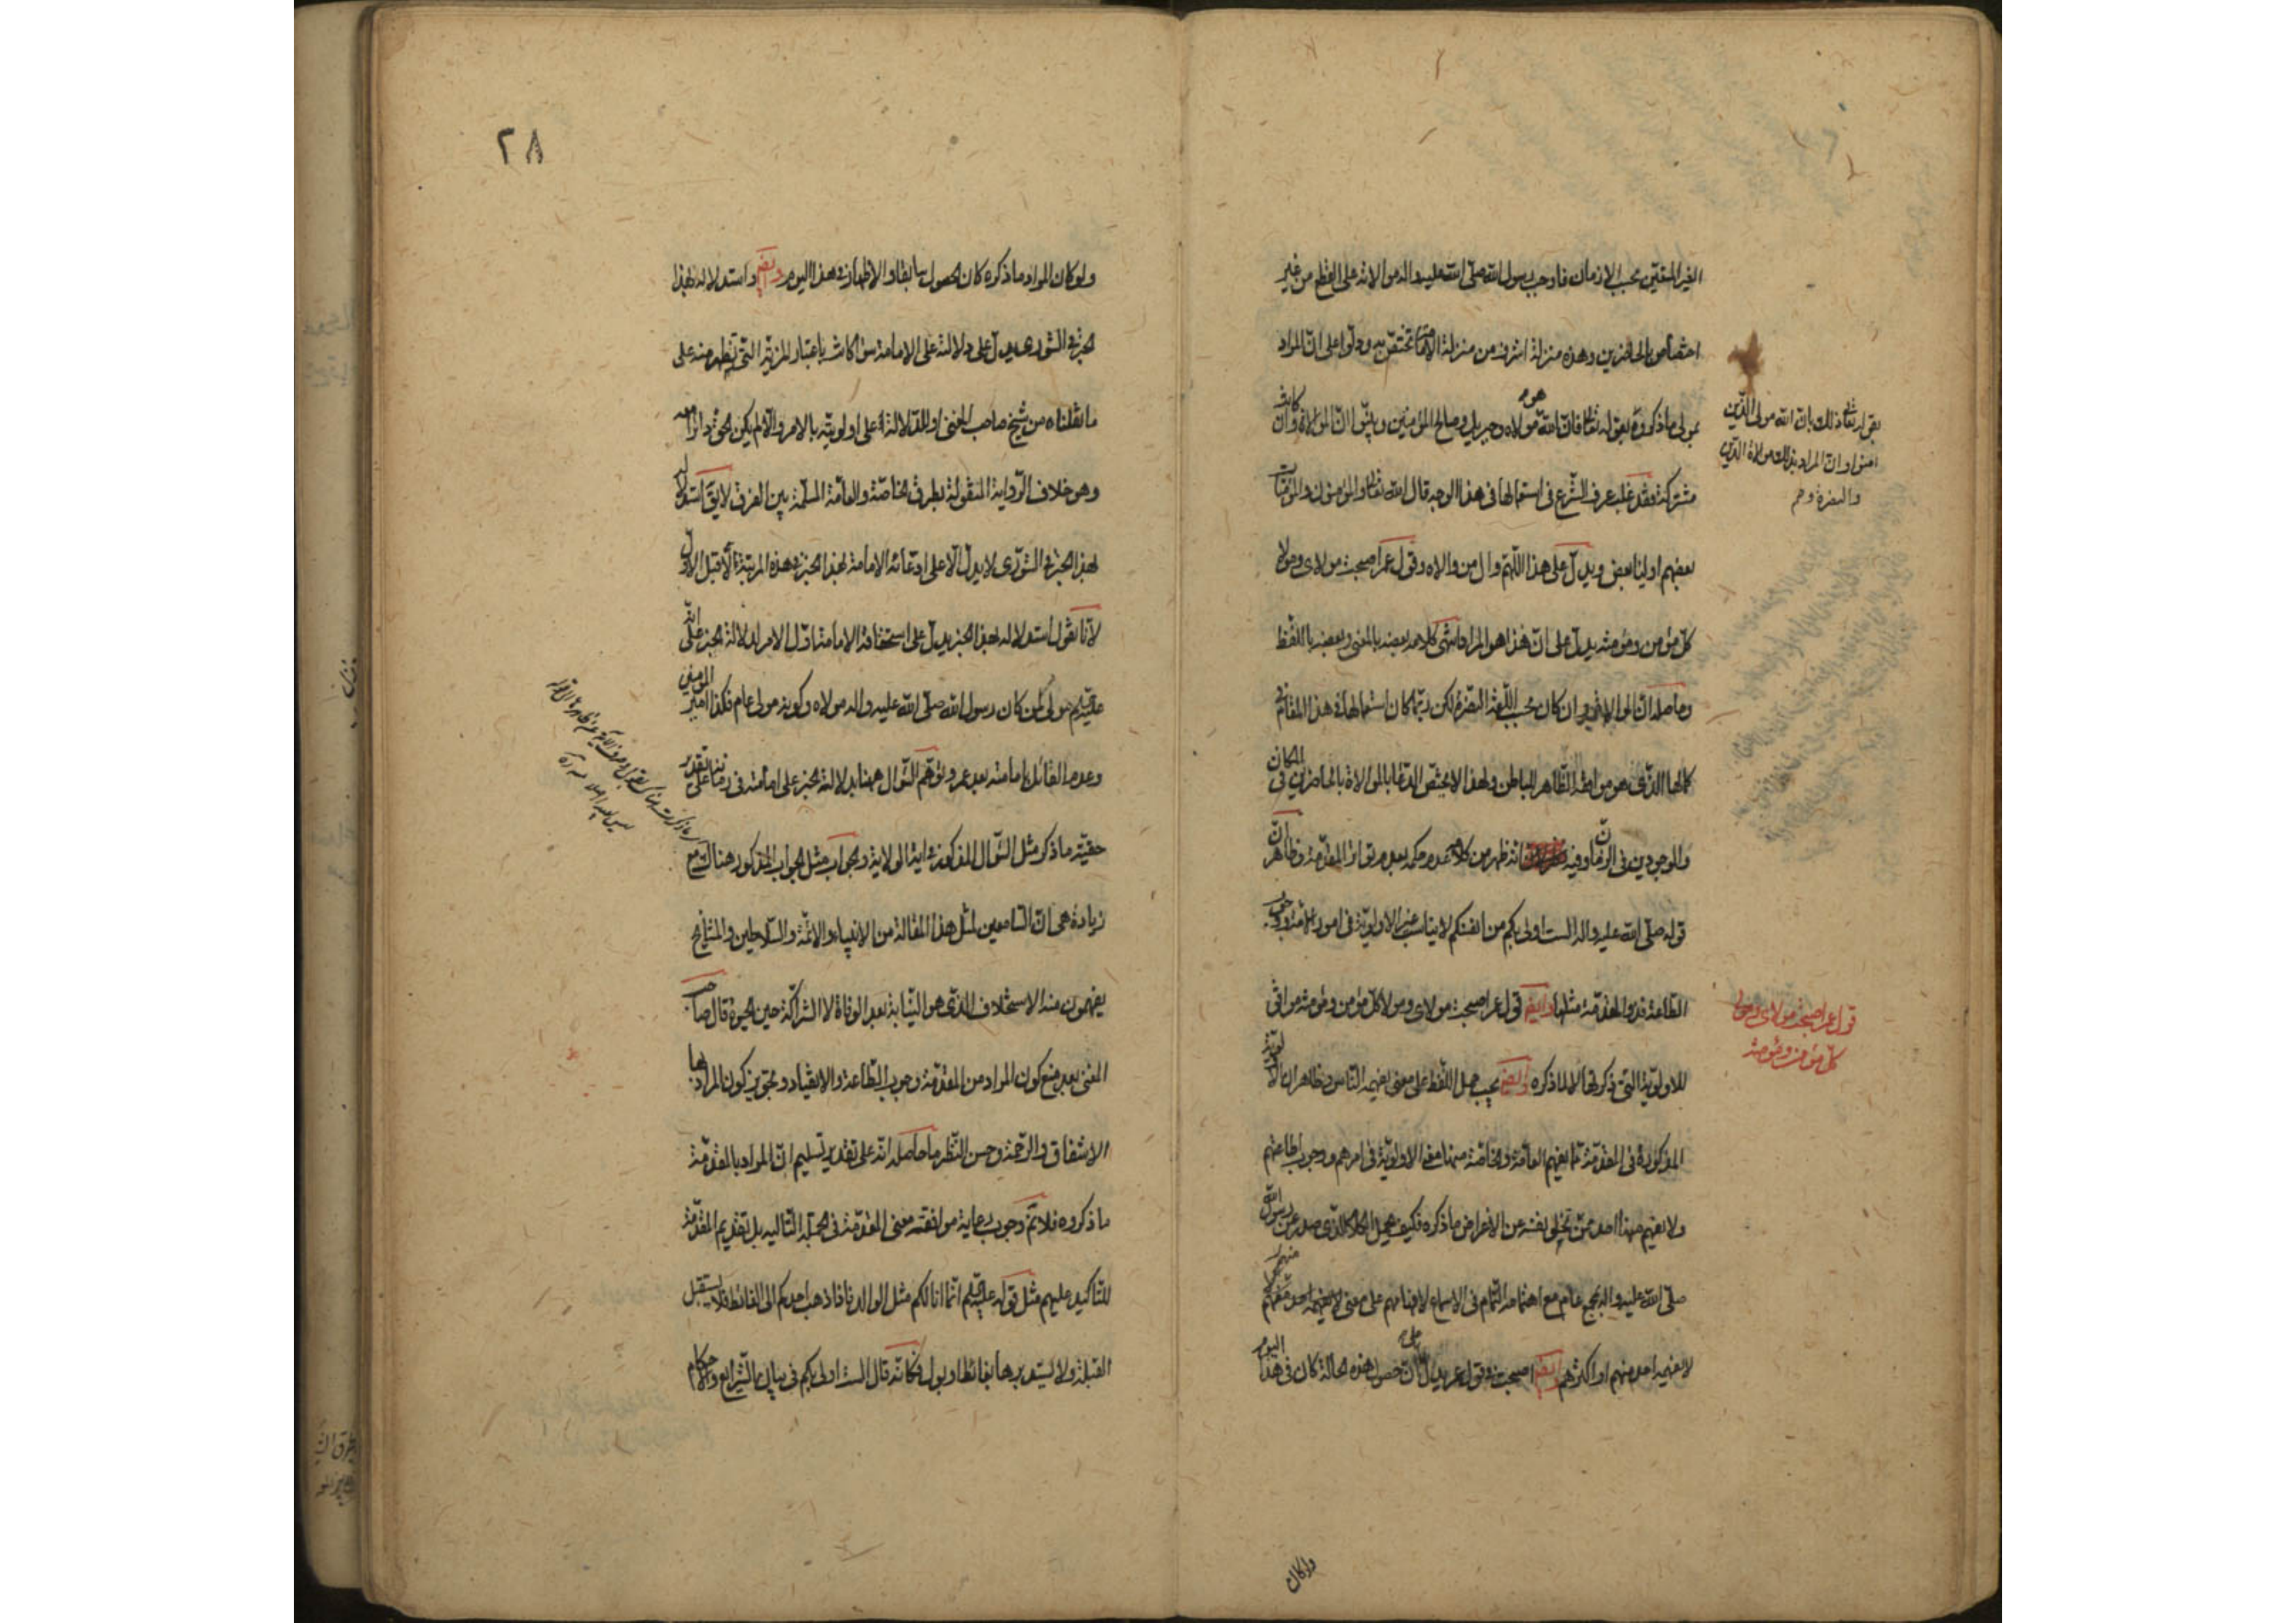 الغير المتقين بحسب الازمان فاوجب رسول الله صلى الله عليه واله موالاته على القطع من غير
اختصاص بالحاضرين وهذه منزلة اشرف من منزلة الامامة تختص به ودلوا على ان المراد
بمولى ما ذكروه بقوله تعالى فان الله هو مولاه وجبريل وصالح المؤمنين وبان الموالاة وان كانت
مشتركة فقد غلب عرف الشرع فى استعمالها فى هذا الوجه قال الله تعالى والمؤمنون والمؤمنات
بعضهم اولياء بعض ويدل على هذا اللهم وال من والاه وقول عمر اصبحت مولاى ومولى
كل مؤمن ومؤمنة يدل على ان هذا هو المراد انتهى كلامه بعضه بالمعنى وبعضه باللفظ
وحاصله ان الموالاة وان كان بحسب اللغة النصرة لكن ربما كان استعمالها فى هذا المقام فى
كمالها الذى هو موافقة الظاهر للباطن ولهذا لا يختص الدعا بالموالاة بالحاضرين فى المكان
والموجودين فى الزمان وفيه انه ظهر من كلامه عدم حكمه بعدم تواتر المقدمة وظاهر ان
قوله صلى الله عليه واله الست اولى بكم من انفسكم لا يناسب غير الاولوية فى امور الامة ووجوب
الطاعة فذو المقدمة مثلها وايضا قول عمر اصبحت مولاى ومولا كل مؤمن ومؤمنة موافق
للاولوية التى ذكرتها لا لما ذكره وايضا يجب حمل اللفظ على معنى يفهمه الناس وظاهر ان الاولوية
المذكورة فى المقدمة مما يفهم العامة والخاصة منها معنى الاولوية فى امرهم ووجوب اطاعتهم
ولا يفهم منها احد ممن تخلى نفسه عن الاغراض ما ذكره فكيف يحمل الكلام الذى صدر عن رسول الله
صلى الله عليه واله بجمع عام مع اهتمامه التمام فى الاسماع والافهام على معنى لا يفهمه احد منهم
لا يفهمه احد منهم او اكثرهم وايضا اصبحت فى قول عمر يدل على ان خصوص هذه الحالة كان فى هذا اليوم
بقوله تعالى ذلك بان الله مولى الذين
امنوا وان المراد بذلك موالاة الدين
والنصرة
قول عمر اصبحت مولاى ومولى
كل مؤمن ومؤمنة
وان كان
٢٨
ولو كان المراد ما ذكره كان الحصول سابقا والاظهار فى هذا اليوم وايضا استدلاله بهذا
الخبر فى الشورى يدل على دلالته على الامامة سوا كانت باعتبار المزية التى تظهر منه على
ما نقلناه من شيخ صاحب المغنى او للدلالة على اولويته بالامر والا لم يكن
وهو خلاف الرواية المنقولة بطرق الخاصة والعامة المسلمة بين الفرق لا يق استدلاله
بهذا الخبر فى الشورى لا يدل الا على ادعائه الامامة بهذا الخبر فى هذه المرتبة لا قبل الاول
لانا نقول استدلاله بهذا الخبر يدل على استحقاقه الامامة اول الامر لدلالة الخبر على انه
عليه السلم مولى لمن كان رسول الله صلى الله عليه واله مولاه وكونه مولى عام فكذا امير المومنين
وعدم القائل بامامته بعد عمر وتوهم السؤال ههنا بدلالة الخبر على امامته فى زمان على تقدير
حقية ما ذكر مثل السؤال المذكور فى اية الولاية والجواب مثل الجواب المذكور هناك مع
زيادة هى ان السامعين لمثل هذا المقالة من الانبياء والائمة والسلاطين والمشايخ
يفهمون منه الاستخلاف الذى هو النيابة بعد الوفاة لا الشراكة حين الحيوة قال صاحب
المغنى بعد منع كون المراد من المقدمة وجوب الطاعة والانقياد وتجويز كون المراد بها
الاشفاق والرحمة وحسن النظر ما حاصله انه على تقدير تسليم ان المراد بالمقدمة
ما ذكروه فلا نم وجوب رعاية موافقة معنى المقدمة فى الجملة التاليه بل تقديم المقدمة
للتاكيد عليهم مثل قوله عليه السلم انما انا لكم مثل الوالد فاذا ذهب احدكم الى الغائط فلا يستقبل
القبلة ولا يستدبرها بغائط او بول فكانه قال الست اولى بكم فى بيان الشرايع والاحكام